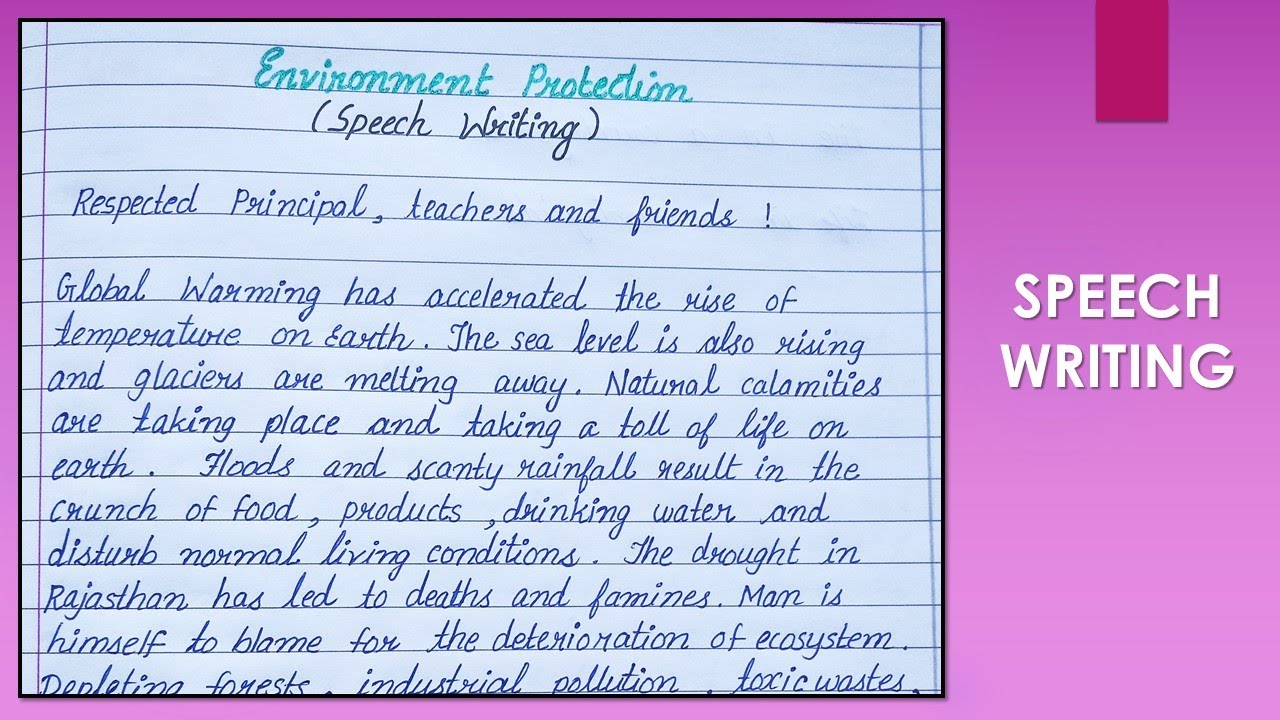 Environment Protection
(Speech Writing)
Respected Principal, teachers and friends !
Global Warming has accelerated the rise of
temperature on Earth. The sea level is also rising
and glaciers are melting away. Natural calamities
are taking place and taking a toll of life on
earth. Floods and scanty rainfall result in the
crunch of food, products, drinking water and
disturb normal living conditions. The drought in
Rajasthan has led to deaths and famines. Man is
himself to blame for the deterioration of ecosystem.
Depleting forests, industrial pollution, toxic wastes,
SPEECH
WRITING